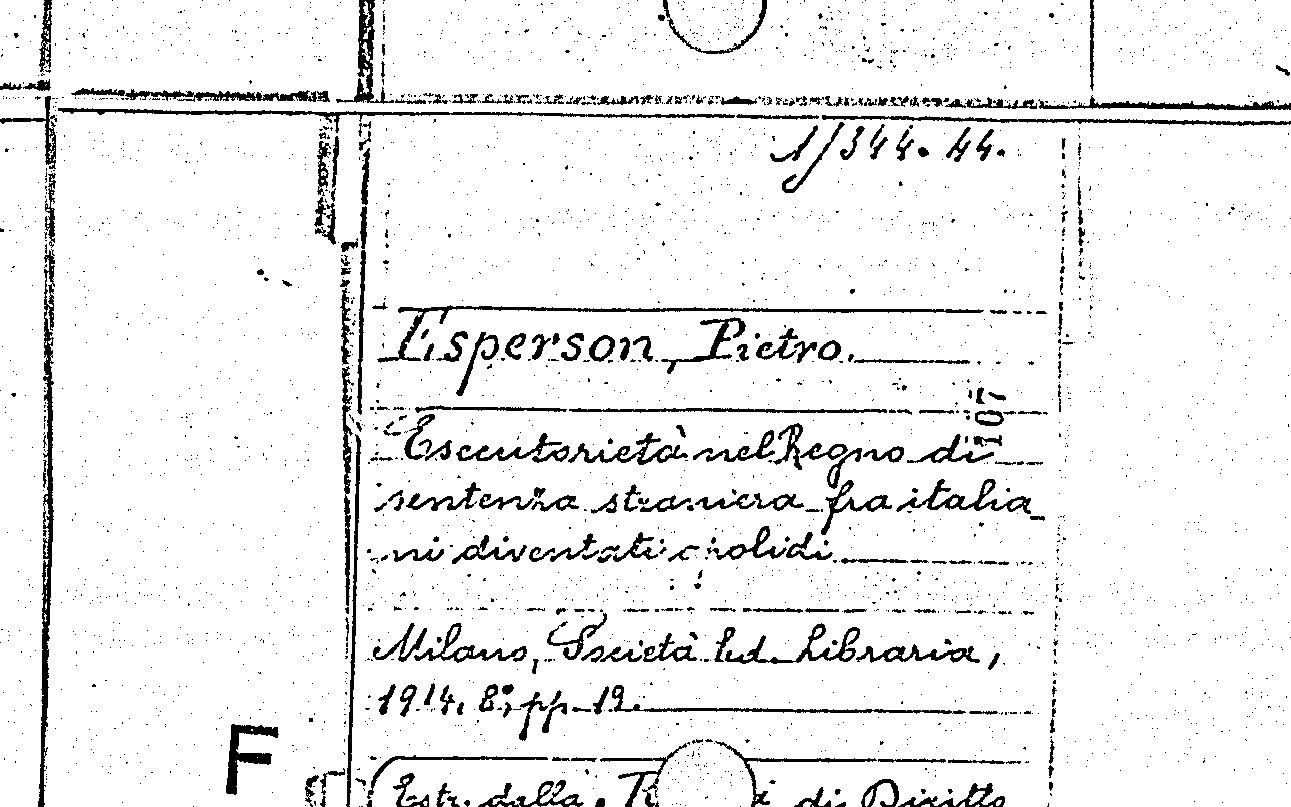 1/344.44.
Esperson, Pietro.
107
Esecutorietà nel Regno di
sentenza straniera fra italia_
ni diventati apolidi
Milano, Società Ed. Libraria,
1914. 8°; pp. 19.
F
Estr. dalla di Diritto